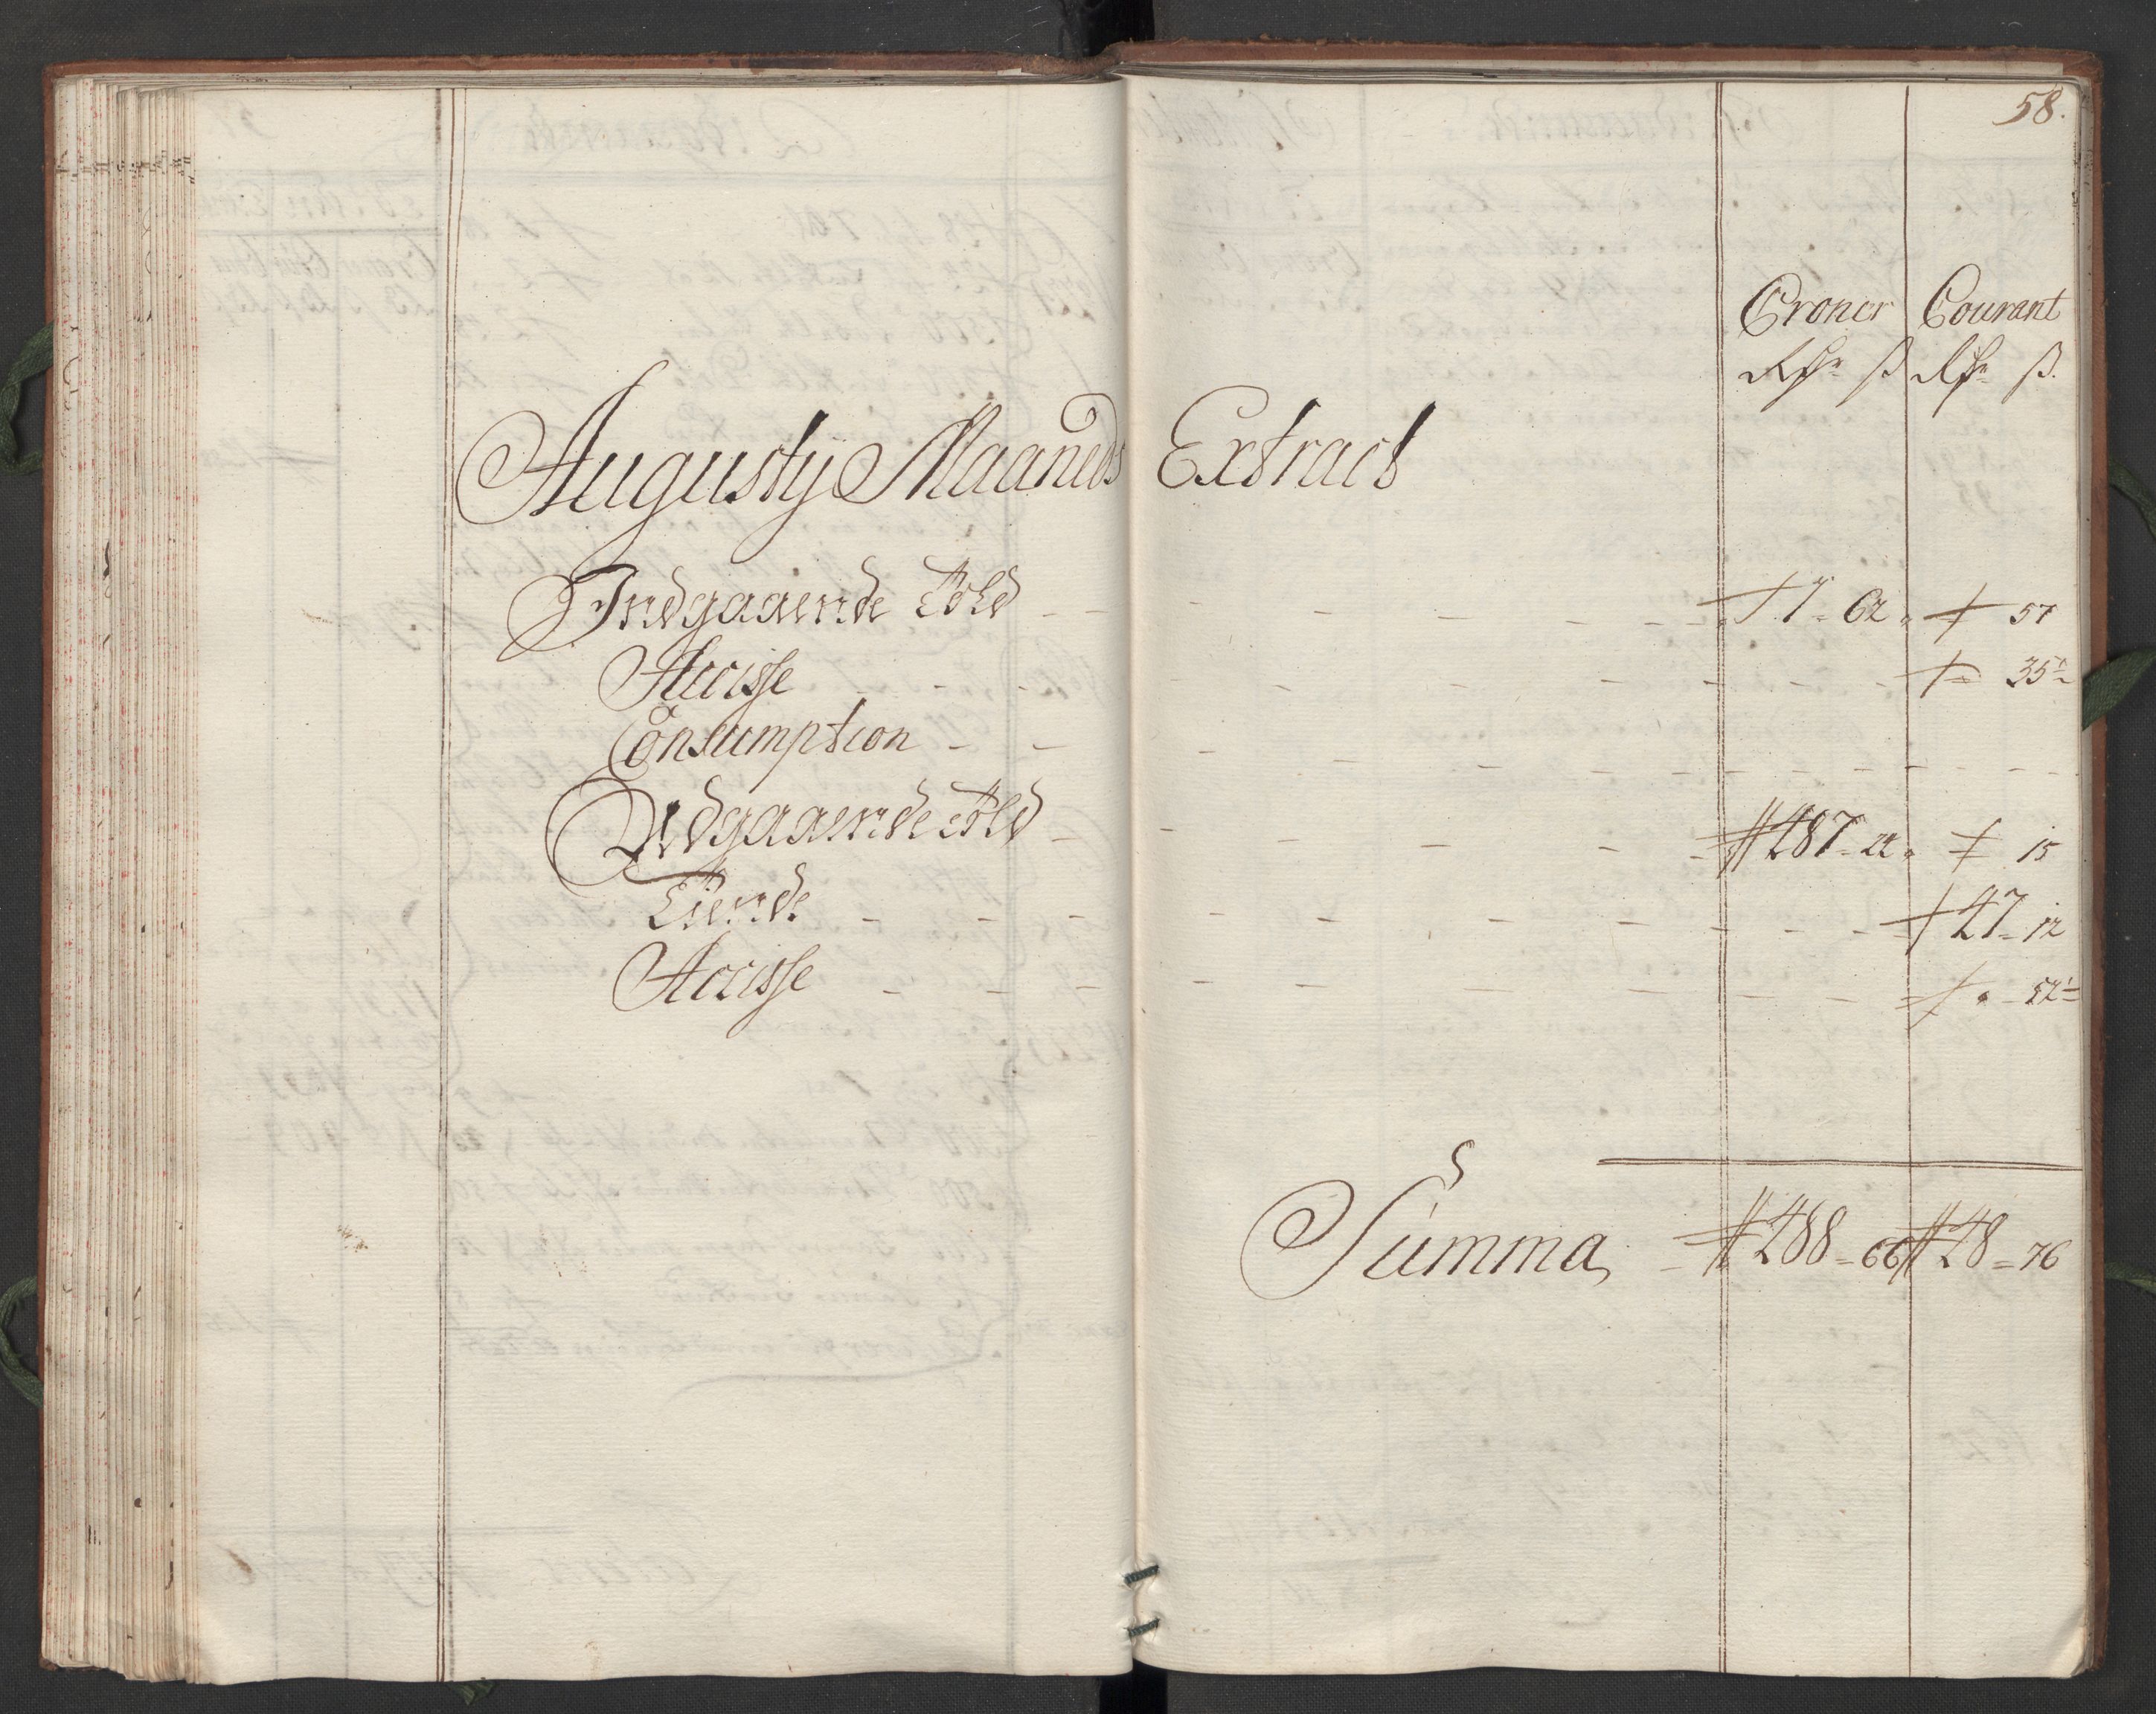 58.
Croner Courant
Rdr ß Rdr ß.
Augusty Maaneds Extract
Indgaaende Told 1 - 62 57
Accisse 35½
Consumption
Udgaaende Told 287 - 22 15
Tiende 47 - 12
Accisse 52½
Summa 288 - 66 48 - 76